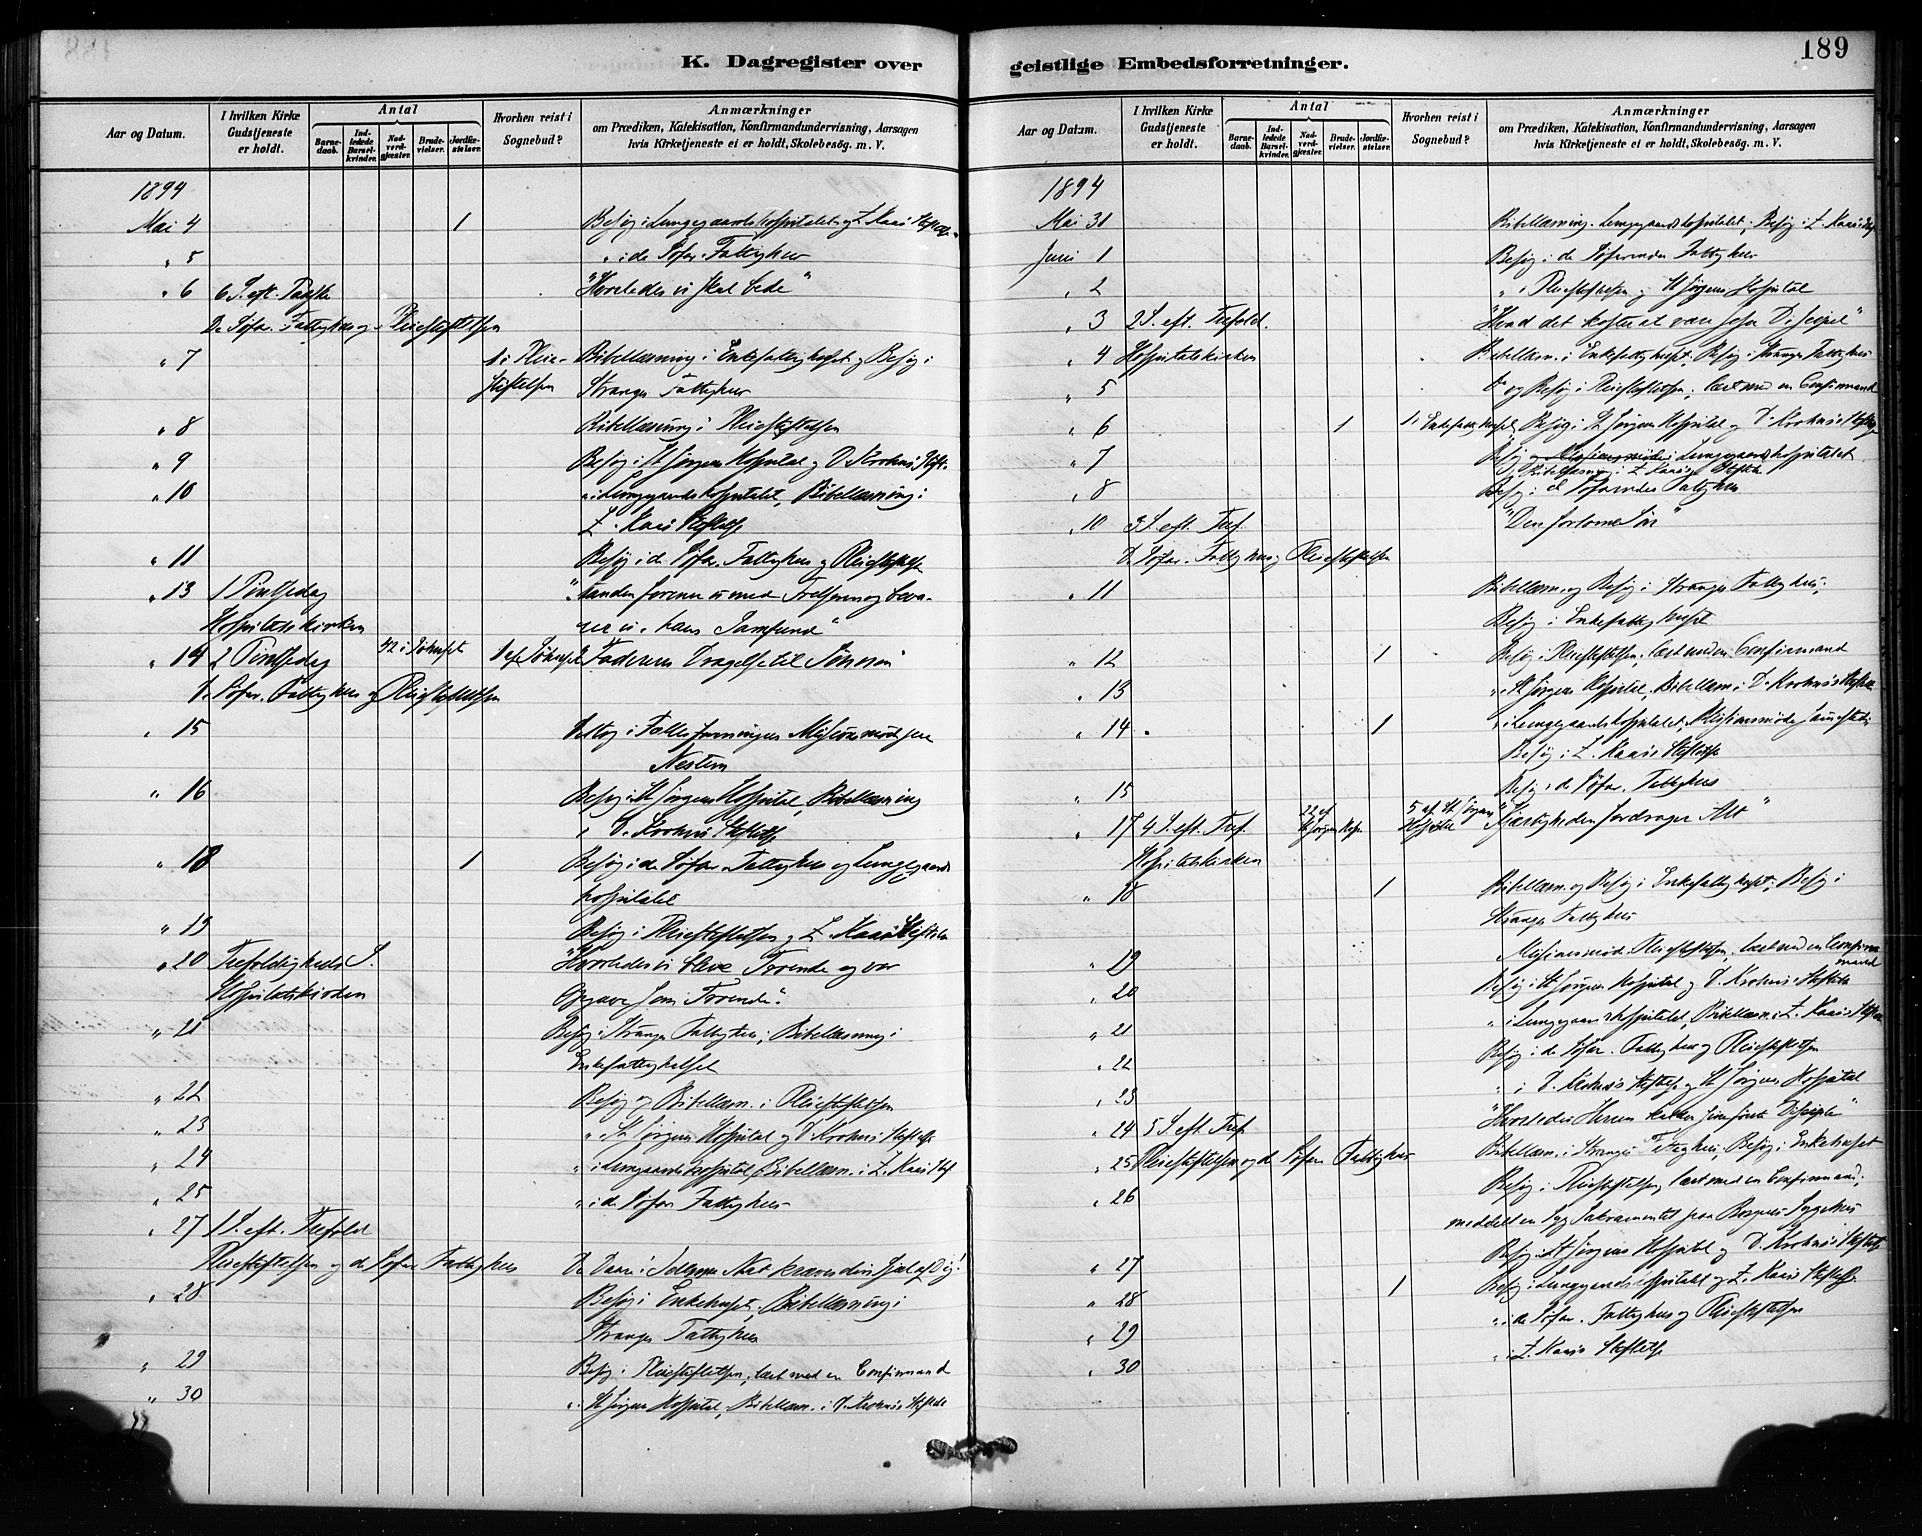 189
K. Dagregister over
geistlige Embedsforretninger.
Aar og Datum.
I hvilken Kirke
Gudstjeneste
er holdt.
Antal
Barne-
daab.
Ind-
ledede
Barsel-
kvinder.
Nad-
verd-
gjæster.
Brude-
vielser.
Jordfæ-
stelser.
Hvorhen reist i
Sognebud?
Anmærkninger
om Prædiken, Katekisation, Konfirmandundervisning, Aarsagen
hvis Kirketjeneste ei er holdt, Skolebesøg. m. V.
1894
Mai 4 1 Besøg i Lungegaardshospitalet og Z. Kaas's
" 5 " i de Søfar. Fattighus
" 6 6 S. eft. Paaske "Hvorledes vi skal bede"
De Søfar. Fattighus og Pleiestiftelsen
" 7 1 i Pleie- Bibellæsning i Enkefattighuset og Besøg i
stiftelsen Stranges Fattighus
" 8 Bibellæsning i Pleiestiftelsen
" 9 Besøg i St Jørgens Hospital og D. Krohns's Stift.
" 10 " i Lungegaardshospitalet, Bibellæsning i
Z. Kaas's Stiftelse
" 11 Besøg i de Søfar. Fattighus og Pleiestiftelse
" 13 1 Pintsedag "Aanden forener os med Frelseren og beva-
Hospitalskirken rer os i hans Samfund"
" 14 2 Pintsedag 42 i Søhuset Faderens Dragelse til Sønnen
De Søfar. Fattighus og Pleiestiftelsen
" 15 Deltog i Fællesforeningens Missionsmøde paa
Nestun
" 16 Besøg i St Jørgens Hospital, Bibellæsning
i D. Krohns's Stiftelse
" 18 1 Besøg i de Søfar. Fattighus og Lungegaards
hospitalet
" 19 Besøg i Pleiestiftelsen og Z. Kaas's Stiftelse
" 20 Trefoldigheds S. "Hvorledes vi bleve Troende og vor
Hospitalskirken Opgave som Troende".
" 21 Besøg i Stranges Fattighus; Bibellæsning i
Enkefattighuset
" 22 Besøg og Bibellæsn. i Pleiestiftelsen
" 23 " St Jørgens Hospital og D. Krohns's Stiftelse
" 24 " i Lungegaardshospital, Bibellæsn. i Z. Kaas's Stif
" 25 " i de Søfar. Fattighus
" 27 1 S. eft. Trefold.
Pleiestiftelsen og de Søfar. Fattighus Du Daare i denne Nat kræves din Sjæl af Dig!
" 28 Besøg i Enkehuset, Bibellæsning i
Stranges Fattighus
" 29 Besøg i Pleiestiftelsen, læst med en Confirmand
" 30 " St Jørgens Hospital, Bibellæsn. i D. Krohns's Stiftelse
Aar og Datum.
I hvilken Kirke
Gudstjeneste
er holdt.
Antal
Barne-
daab.
Ind-
ledede
Barsel-
kvinder.
Nad-
verd-
gjæster.
Brude-
vielser.
Jordfæ-
stelser.
Hvorhen reist i
Sognebud?
Anmærkninger
om Prædiken, Katekisation, Konfirmandundervisning, Aarsagen
hvis Kirketjeneste ei er holdt, Skolebesøg. m. V.
1894
Mai 31 Bibellæsning i Lungegaardshospitalet; Besøg i Z. Kaas's Stif
Juni 1 Besøg i de Søfarendes Fattighus
" 2 " i Pleiestiftelsen og St Jørgens Hospital
" 3 2 S. eft. Trefold. "Hvad det koster at være Jesu Discipel"
" 4 Hospitalskirken Bibellæsn. i Enkefattighuset, Besøg i Stranges Fattighus
" 5 Do og Besøg i Pleiestiftelsen; læst med en Confirmand
" 6 1 1 i Enkefattighuset Besøg i St Jørgens Hospital og D. Krohns's Stiftelse
" 7 Besøg i Lungegaardshospitalet
Bibellæsning i Z. Kaas's Stiftelse
" 8 Besøg i d. Søfarendes Fattighus
" 10 3 S. eft. Tref. "Den fortabte Søn"
D. Søfar. Fattighus og Pleiestiftelsen
" 11 Bibellæsn. og Besøg i Stranges Fattighus;
Besøg i Enkefattighuset
" 12 1 Besøg i Pleiestiftelsen, læst med en Confirmand
" 13 " i St Jørgens Hospital, Bibellæsn. i D. Krohns's Stiftelse
" 14 1 " i Lungegaardshospitalet, Missionsmøde
Besøg i Z. Kaas's Stiftelse
" 15 Besøg i de Søfar. Fattighus
" 17 4 S. eft. Tref. 22 af St Jørgens Hosp. 5 af St Jørgens Hospital "Kjærligheden fordrager Alt"
Hospitalskirken
" 18 1 Bibellæsn. og Besøg i Enkefattighuset; Besøg i
Stranges Fattighus
" 19 Missionsmøde i Pleiestiftelsen, læst med en Confir-
mand
" 20 Besøg i St Jørgens Hospital og D. Krohns's Stiftelse
" 21 " i Lungegaardshospitalet, Bibellæsn. i Z. Kaas's Stiftelse
" 22 Besøg i de Søfar. Fattighus og Pleiestiftelsen
" 23 " i D. Krohns's Stiftelse og St Jørgens Hospital
" 24 5 S. eft. Tref. "Hvorledes Herren kalder sine første Disciple"
" 25 Pleiestiftelsen og de Søfar. Fattighus Bibellæsn. i Stranges Fattighus, Besøg i Enkehuset
" 26 Besøg i Pleiestiftelsen, læst med en Confirmand;
meddelt en Syg Sakramentet paa Bergens Sygehus
" 27 Besøg i St Jørgens Hospital og D. Krohns's Stiftelse
" 28 1 Besøg i Lungegaardshospitalet og Z. Kaas's Stiftelse
" 29 " i de Søfar. Fattighus og Pleiestiftelsen
" 30 " i Z. Kaas's Stiftelse